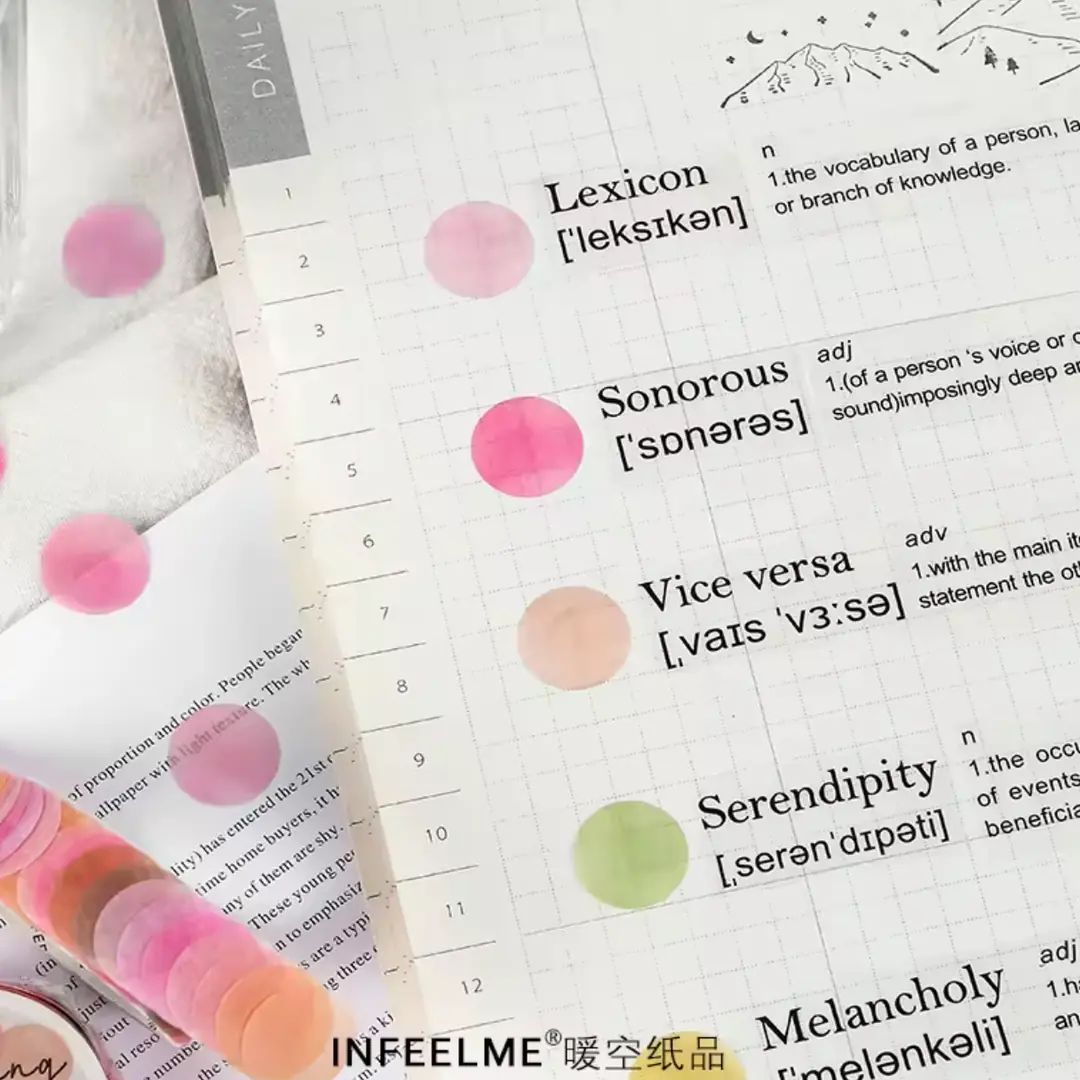 DAILY
1
2
3
4
5
6
7
8
9
10
11
12
Lexicon
['leksɪkən]
n
1.the vocabulary of a person, la
or branch of knowledge.
Sonorous
['sɒnərəs]
adj
1.(of a person 's voice or o
sound)imposingly deep an
Vice versa
[ˌvaɪs 'vɜːsə]
adv
1.with the main ite
statement the oth
Serendipity
[ˌserən'dɪpəti]
n
1.the occu
of events
beneficia
Melancholy
['melənkəli]
adj
1.ha
an
of proportion and color. People began
allpaper with light texture. The wh
lity) has entered the 21st c
time home buyers, it h
ny of them are shy.
These young pe
n to emphasiz
s are a typi
ng three
s a ki
(in
of
just
iout
al reso
numbe
the
INFEELME®暖空纸品